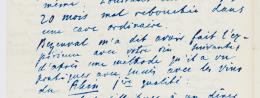 20 mois mal rebouchée dans
une cave ordinaire.
m'a dit avoir fait l'ex-
périence avec votre vin suivantes
d'après une méthode qu'il a vu
pratiquer avec succès avec les vins
du Rhin 1ère qualité:
à un dîner